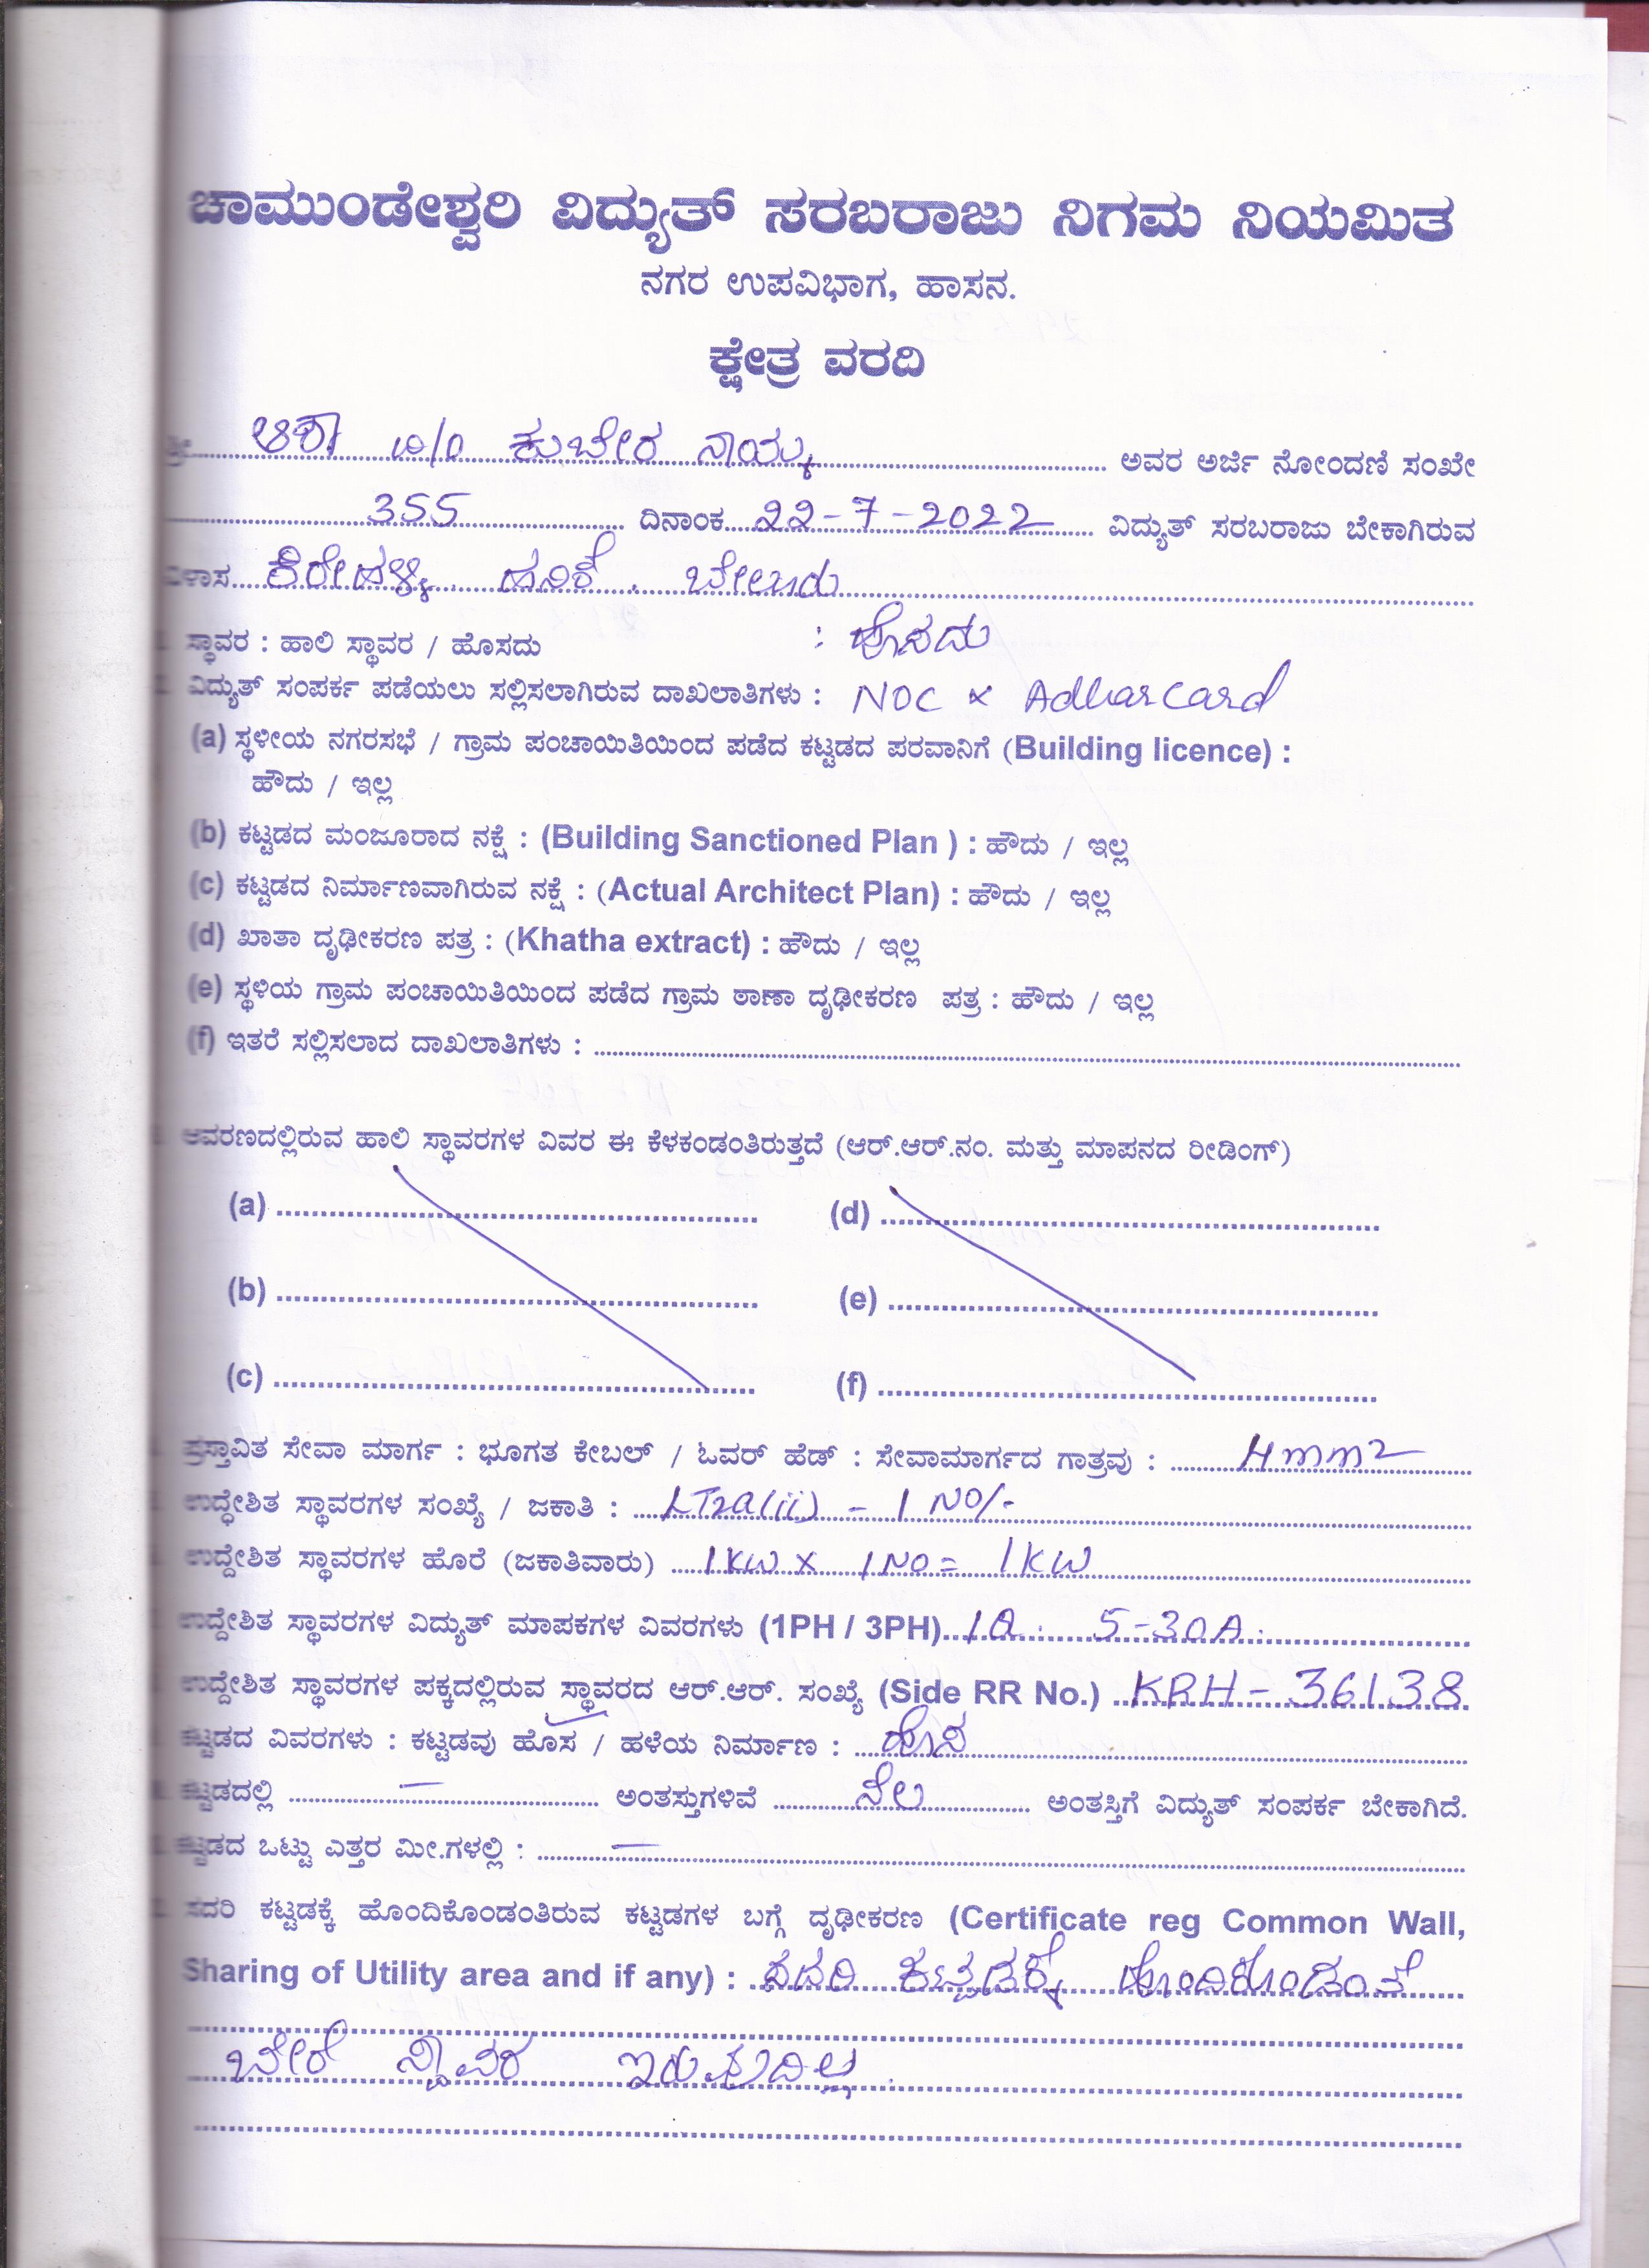 ಚಾಮುಂಡೇಶ್ವರಿ ವಿದ್ಯುತ್ ಸರಬರಾಜು ನಿಗಮ ನಿಯಮಿತ
ನಗರ ಉಪವಿಭಾಗ, ಹಾಸನ.
ಕ್ಷೇತ್ರ ವರದಿ
ಆಶಾ w/o ಕುಬೇರ ನಾಯ್ಕ ಅವರ ಅರ್ಜಿ ನೋಂದಣಿ ಸಂಖೇ
355 ದಿನಾಂಕ 22-7-2022 ವಿದ್ಯುತ್ ಸರಬರಾಜು ಬೇಕಾಗಿರುವ
ಕಿರೇಹಳ್ಳಿ ಹನಿಕೆ ಬೇಲೂರು
ಸ್ಥಾವರ : ಹಾಲಿ ಸ್ಥಾವರ / ಹೊಸದು : ಹೊಸದು
ವಿದ್ಯುತ್ ಸಂಪರ್ಕ ಪಡೆಯಲು ಸಲ್ಲಿಸಲಾಗಿರುವ ದಾಖಲಾತಿಗಳು : NOC & Adhar Card
(a) ಸ್ಥಳೀಯ ನಗರಸಭೆ / ಗ್ರಾಮ ಪಂಚಾಯಿತಿಯಿಂದ ಪಡೆದ ಕಟ್ಟಡದ ಪರವಾನಿಗೆ (Building licence) :
ಹೌದು / ಇಲ್ಲ
(b) ಕಟ್ಟಡದ ಮಂಜೂರಾದ ನಕ್ಷೆ : (Building Sanctioned Plan ) : ಹೌದು / ಇಲ್ಲ
(c) ಕಟ್ಟಡದ ನಿರ್ಮಾಣವಾಗಿರುವ ನಕ್ಷೆ : (Actual Architect Plan) : ಹೌದು / ಇಲ್ಲ
(d) ಖಾತಾ ದೃಢೀಕರಣ ಪತ್ರ : (Khatha extract) : ಹೌದು / ಇಲ್ಲ
(e) ಸ್ಥಳಿಯ ಗ್ರಾಮ ಪಂಚಾಯಿತಿಯಿಂದ ಪಡೆದ ಗ್ರಾಮ ಠಾಣಾ ದೃಢೀಕರಣ ಪತ್ರ : ಹೌದು / ಇಲ್ಲ
(f) ಇತರೆ ಸಲ್ಲಿಸಲಾದ ದಾಖಲಾತಿಗಳು :
ಆವರಣದಲ್ಲಿರುವ ಹಾಲಿ ಸ್ಥಾವರಗಳ ವಿವರ ಈ ಕೆಳಕಂಡಂತಿರುತ್ತದೆ (ಆರ್.ಆರ್.ನಂ. ಮತ್ತು ಮಾಪನದ ರೀಡಿಂಗ್)
(a) (d)
(b) (e)
(c) (f)
ಪ್ರಸ್ತಾವಿತ ಸೇವಾ ಮಾರ್ಗ : ಭೂಗತ ಕೇಬಲ್ / ಓವರ್ ಹೆಡ್ : ಸೇವಾಮಾರ್ಗದ ಗಾತ್ರವು : 4mm2
ಉದ್ಧೇಶಿತ ಸ್ಥಾವರಗಳ ಸಂಖ್ಯೆ / ಜಕಾತಿ : LT2a(ii) - 1 NO/-
ಉದ್ದೇಶಿತ ಸ್ಥಾವರಗಳ ಹೊರೆ (ಜಕಾತಿವಾರು) 1KW x 1NO = 1KW
ಉದ್ದೇಶಿತ ಸ್ಥಾವರಗಳ ವಿದ್ಯುತ್ ಮಾಪಕಗಳ ವಿವರಗಳು (1PH / 3PH) 5-30A.
ಉದ್ದೇಶಿತ ಸ್ಥಾವರಗಳ ಪಕ್ಕದಲ್ಲಿರುವ ಸ್ಥಾವರದ ಆರ್.ಆರ್. ಸಂಖ್ಯೆ (Side RR No.) KRH-36138
ಕಟ್ಟಡದ ವಿವರಗಳು : ಕಟ್ಟಡವು ಹೊಸ / ಹಳೆಯ ನಿರ್ಮಾಣ : ಹೊಸ
ಕಟ್ಟಡದಲ್ಲಿ — ಅಂತಸ್ತುಗಳಿವೆ ನೆಲ ಅಂತಸ್ತಿಗೆ ವಿದ್ಯುತ್ ಸಂಪರ್ಕ ಬೇಕಾಗಿದೆ.
ಕಟ್ಟಡದ ಒಟ್ಟು ಎತ್ತರ ಮೀ.ಗಳಲ್ಲಿ : —
ಸದರಿ ಕಟ್ಟಡಕ್ಕೆ ಹೊಂದಿಕೊಂಡಂತಿರುವ ಕಟ್ಟಡಗಳ ಬಗ್ಗೆ ದೃಢೀಕರಣ (Certificate reg Common Wall,
Sharing of Utility area and if any) : ಸದರಿ ಕಟ್ಟಡಕ್ಕೆ ಹೊಂದಿಕೊಂಡಂತೆ
ಬೇರೆ ಸ್ಥಾವರ ಇರುವುದಿಲ್ಲ.